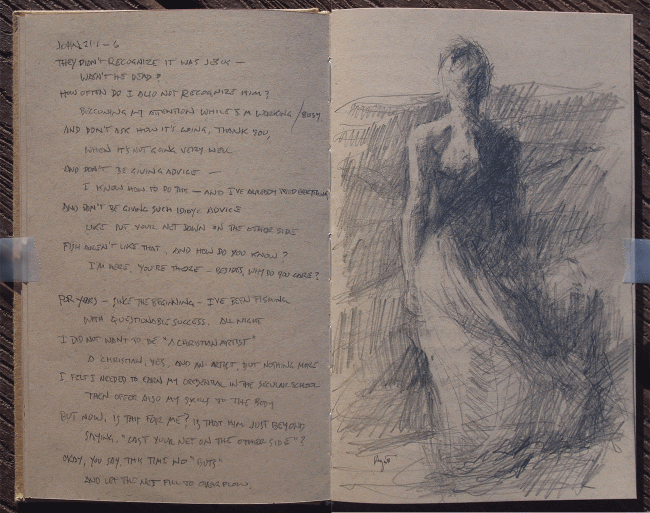 JOHN 21:1-6
THEY DIDN'T RECOGNIZE IT WAS JESUS —
WASN'T HE DEAD?
HOW OFTEN DO I ALSO NOT RECOGNIZE HIM?
BECKONING MY ATTENTION WHILE I'M WORKING / BUSY
AND DON'T ASK HOW IT'S GOING, THANK YOU,
WHEN IT'S NOT GOING VERY WELL
AND DON'T BE GIVING ADVICE —
I KNOW HOW TO DO THIS — AND I'VE ALREADY TRIED EVERYTHING
AND DON'T BE GIVING SUCH IDIOTIC ADVICE
LIKE PUT YOUR NET DOWN ON THE OTHER SIDE
FISH AREN'T LIKE THAT, AND HOW DO YOU KNOW?
I'M HERE, YOU'RE THERE — BESIDES, WHY DO YOU CARE?
FOR YEARS — SINCE THE BEGINNING — I'VE BEEN FISHING
WITH QUESTIONABLE SUCCESS. ALL NIGHT
I DID NOT WANT TO BE "A CHRISTIAN ARTIST"
A CHRISTIAN, YES, AND AN ARTIST, BUT NOTHING MORE
I FELT I NEEDED TO EARN MY CREDENTIAL IN THE SECULAR SCHOOL
THEN OFFER ALSO MY SKILLS TO THE BODY
BUT NOW, IS THIS FOR ME? IS THAT HIM JUST BEYOND
SAYING, "CAST YOUR NET ON THE OTHER SIDE"?
OKAY, YOU SAY, THIS TIME NO "BUTS"
AND LET THE NET FILL TO OVERFLOW.